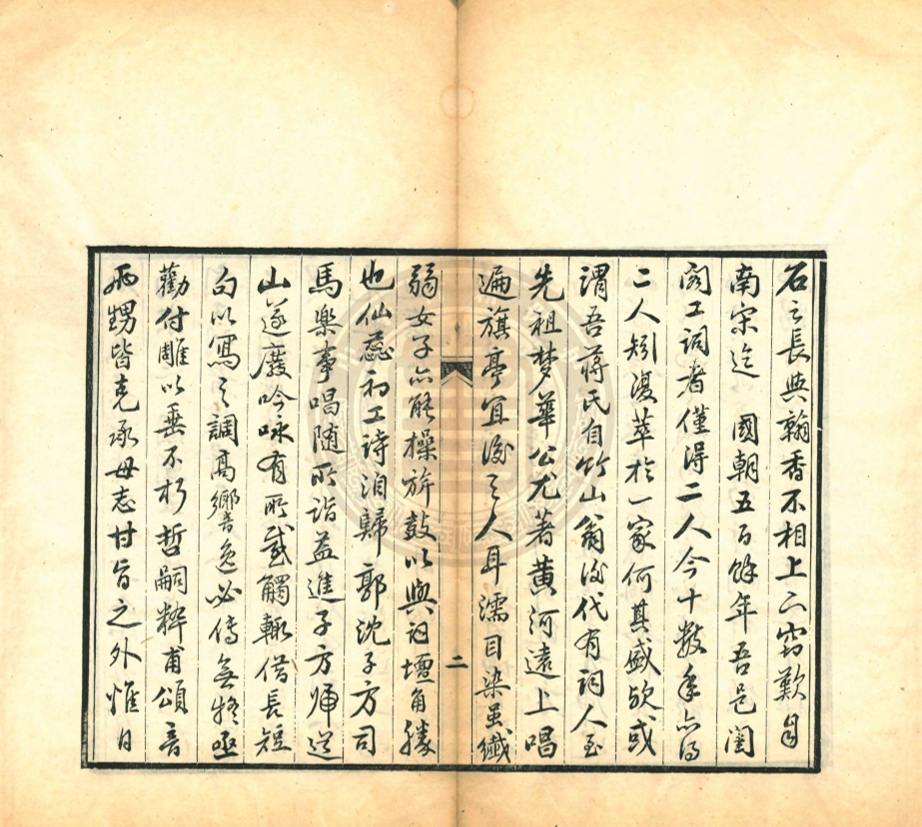 石之長與翰香不相上下竊歎自
南宋迄 國朝五百餘年吾邑閨
閤工詞者僅得二人今十數年亦得
二人矧復萃於一家何其盛歟或
謂吾蔣氏自竹山翁後代有詞人至
先祖夢華公尤著黃河遠上唱
遍旗亭宜後之人耳濡目染虽纖
二
弱女子亦能操旂鼓以與詞壇角勝
也仙蕊初工詩洎歸郭沈子方司
馬樂事唱随所詣益進子方師逝
山遂廢吟咏有所感觸輒借長短
句以寫之調高響逸必傳無疑亟
勸付雕以垂不朽哲嗣粹甫頌音
兩甥皆克承母志甘旨之外惟日